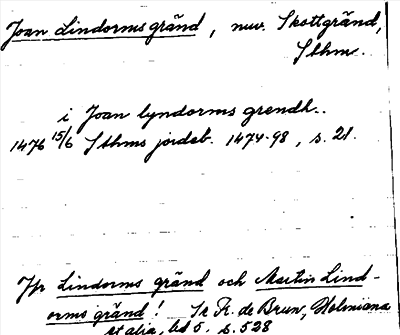 Joan Lindorms gränd, nuv. Skottgränd,
Sthm.
i Joan lyndorms grendh..
1476 15/6 Sthms jordeb. 1474-98, s. 21.
Jfr Lindorms gränd och Martin Lind-
orms gränd! Se Fr. de Brun, Holmiana
et alia, bd 5, s. 528